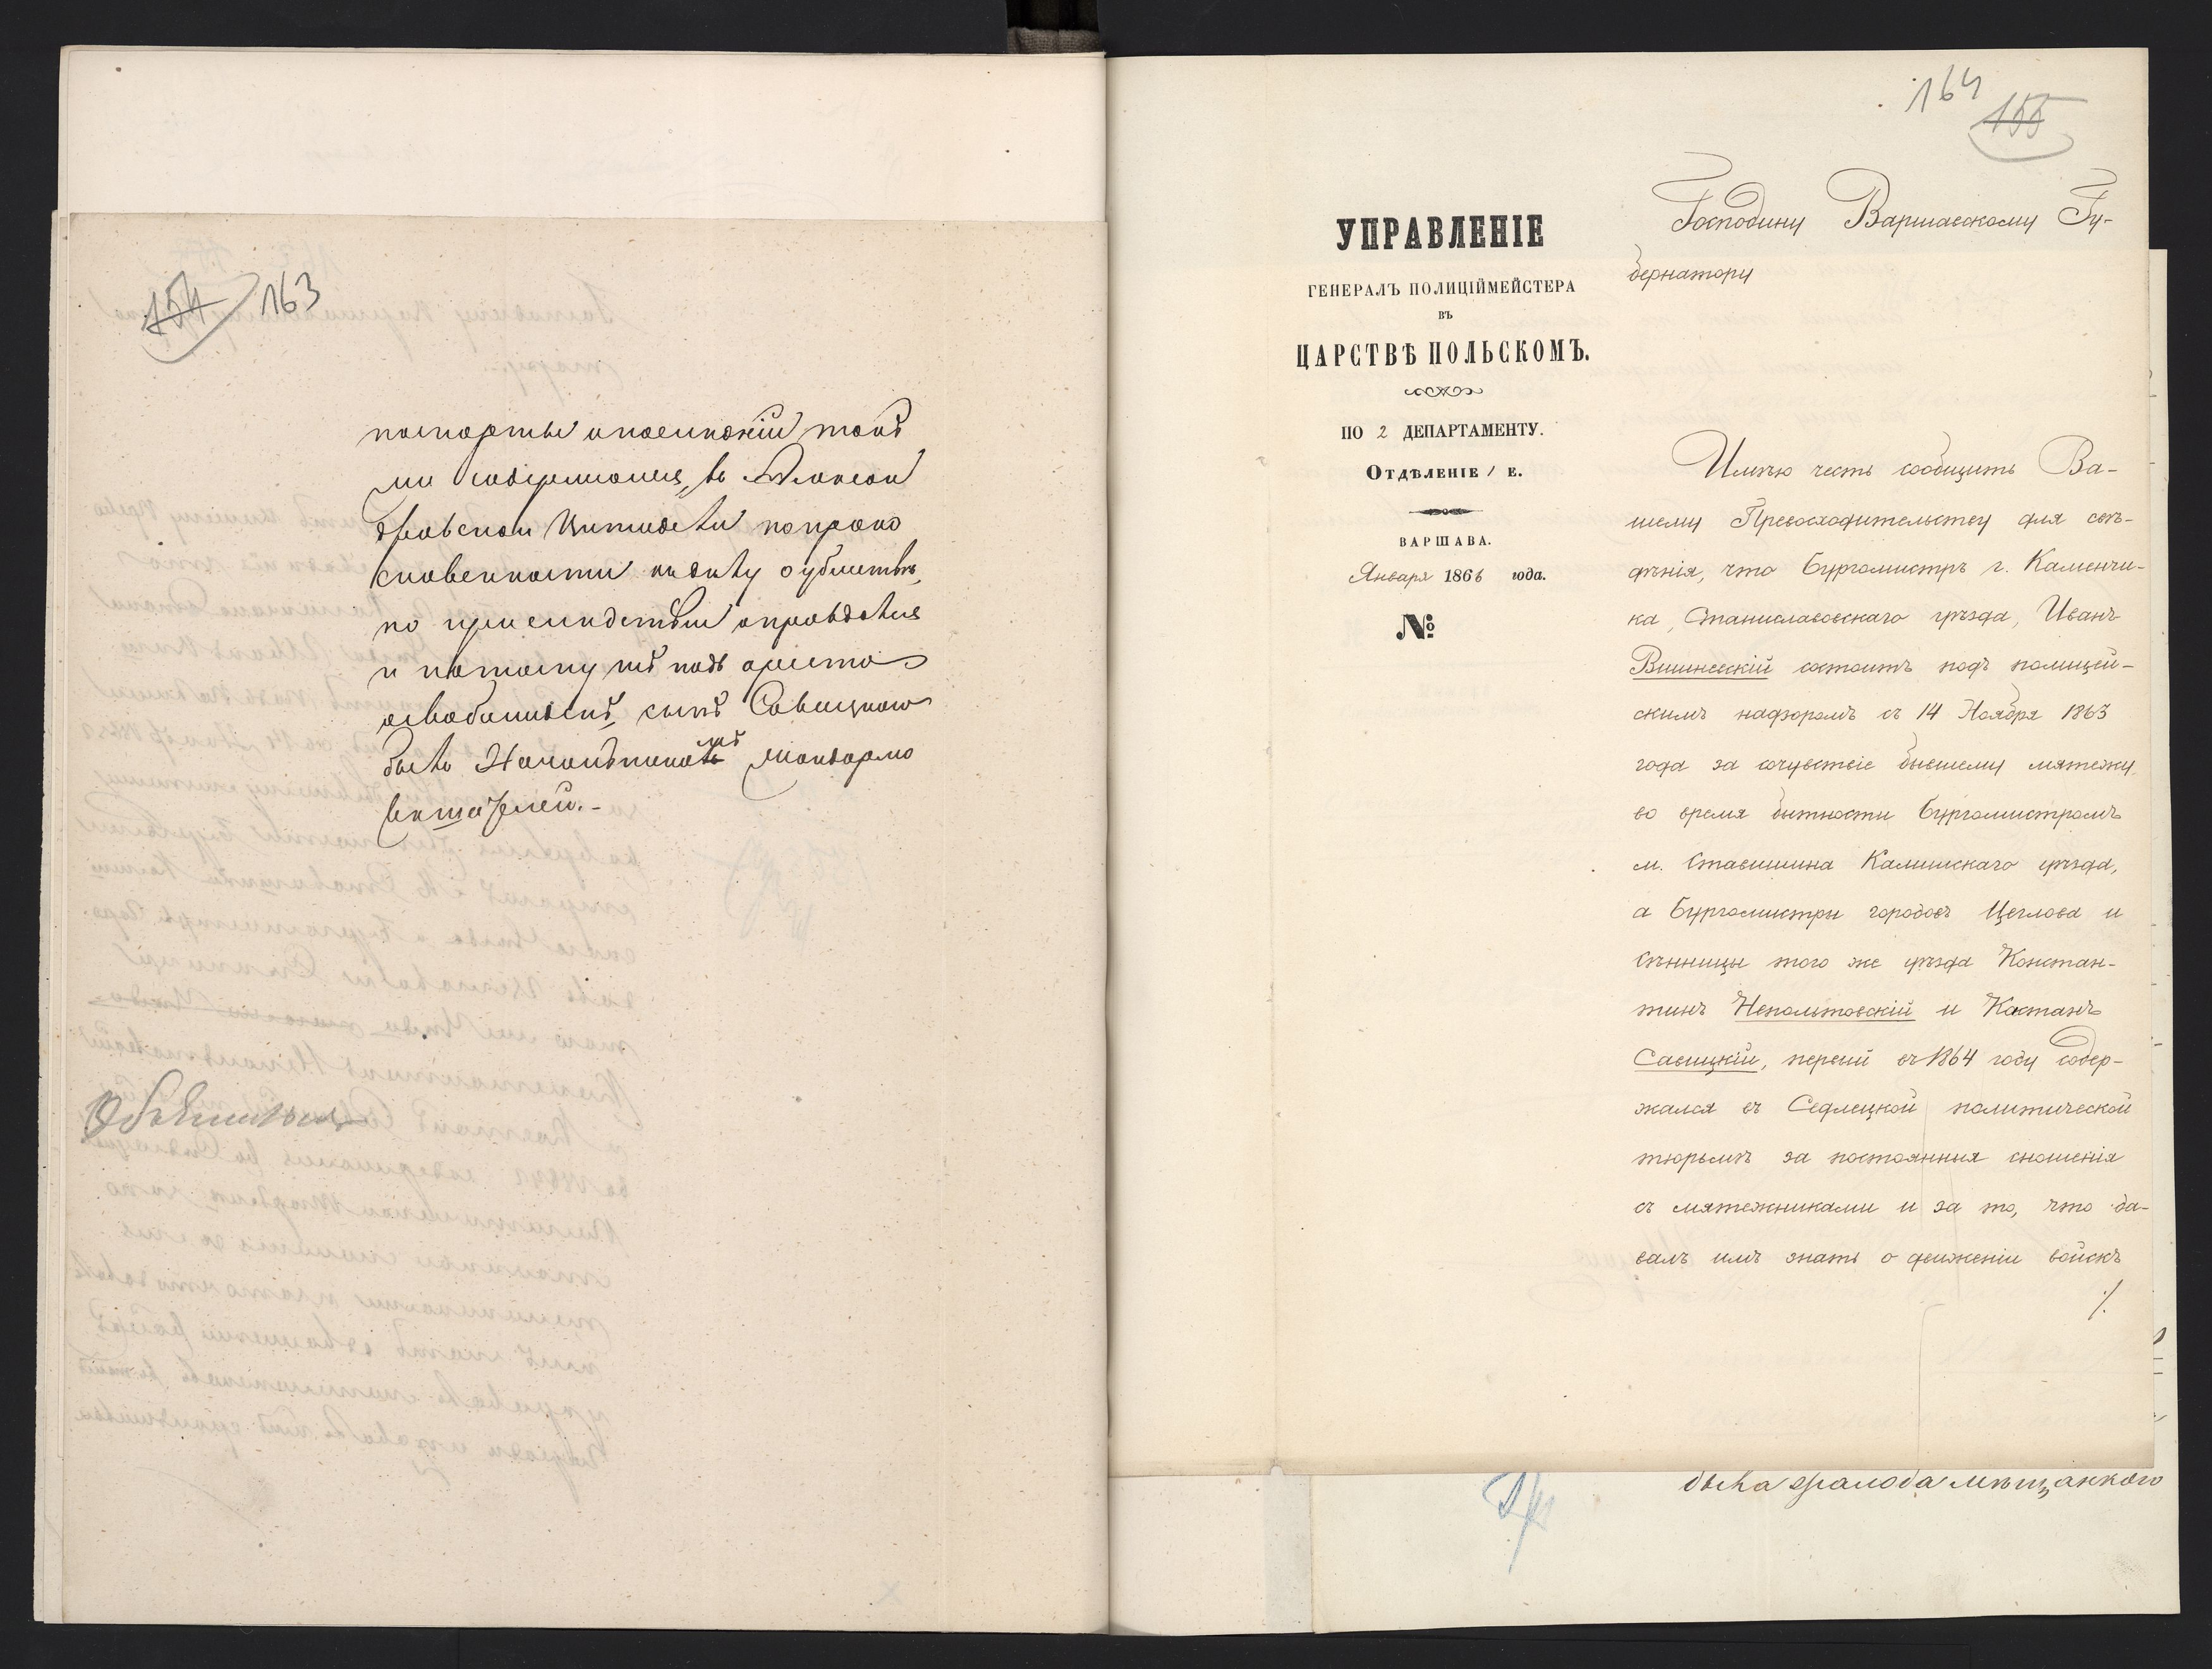 154 163
паспорты и последній так
же содержался въ Алексан
дровской Цитадели по прико
сновенности къ дѣлу о убійствѣ,
но при слѣдствіи оправдался
и потому изъ подъ ареста
освобожденъ, сынъ Савицкаго
былъ Начальникомъ жандармо
вѣшателей.-
164
155
УПРАВЛЕНІЕ
ГЕНЕРАЛЪ ПОЛИЦІЙМЕЙСТЕРА
ВЪ
ЦАРСТВѢ ПОЛЬСКОМЪ.
ПО 2 ДЕПАРТАМЕНТУ.
ОТДѢЛЕНІЕ 1 Е.
ВАРШАВА.
Января 1866 года.
№
Господину Варшавскому Гу-
бернатору
Имѣю честь сообщить Ва-
шему Превосходительству для свѣ-
дѣнія, что Бургомистръ г. Каменчи-
ка, Станиславовскаго уѣзда, Иванъ
Вишневскій состоитъ подъ полицей-
скимъ надзоромъ съ 14 Ноября 1863
года за сочувствіе бывшему мятежу,
во время бытности Бургомистромъ
м. Ставишина Калишскаго уѣзда,
а Бургомистры городовъ Цеглова и
Сѣнницы того же уѣзда Констан-
тинъ Непольтовскій и Каетанъ
Савицкій, первый въ 1864 году содер-
жался въ Седлецкой политической
тюрьмѣ за постоянныя сношенія
съ мятежниками и за то, что да-
валъ имъ знать о движеніи войскъ
./.
была жалоба мѣщанкого